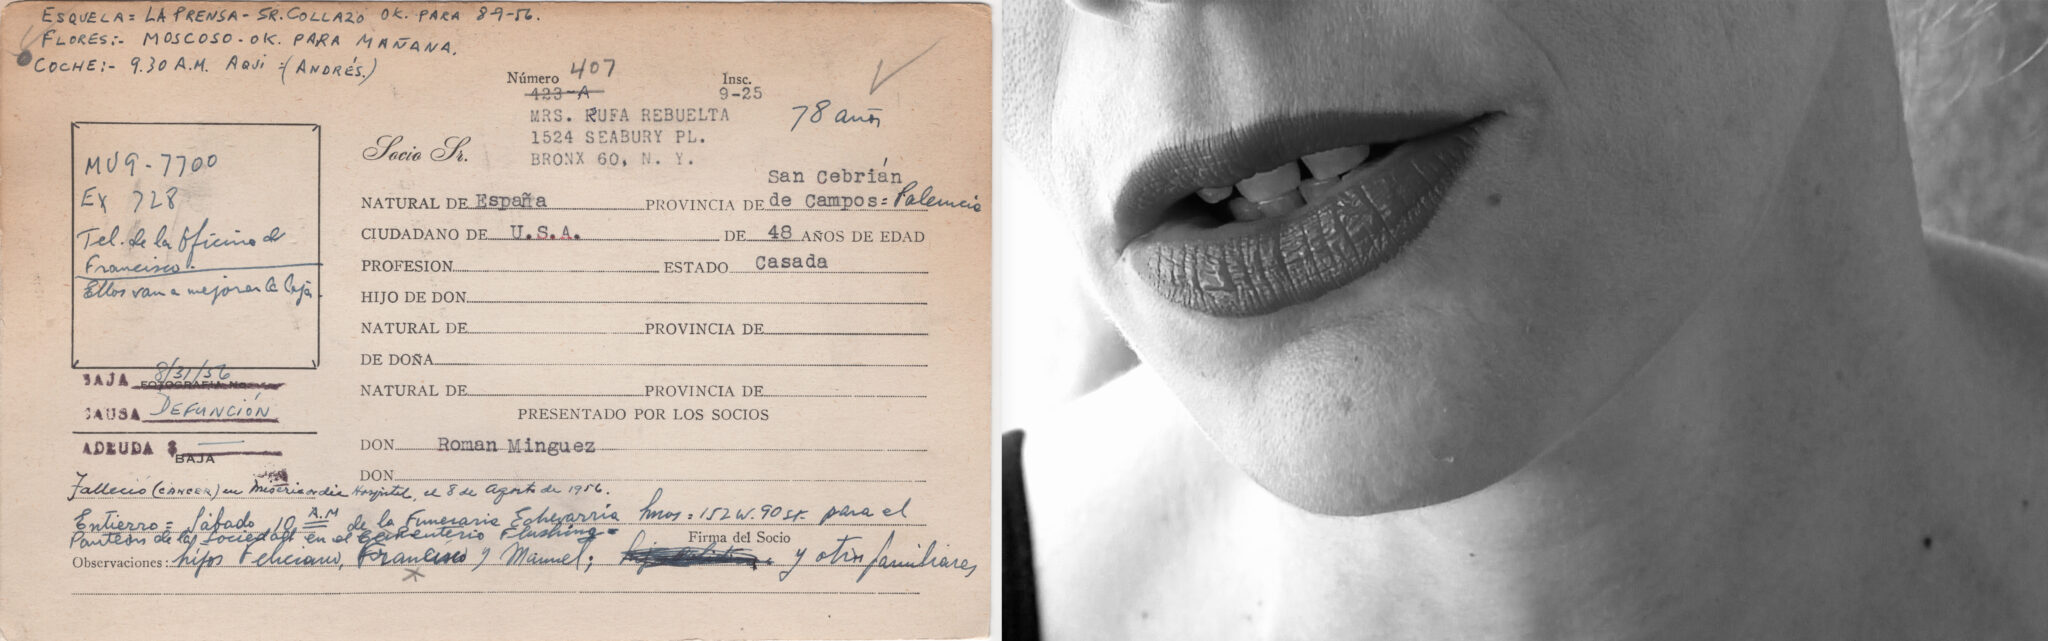 ESQUELA = LA PRENSA - SR. COLLAZO OK. PARA 8-9-56.
FLORES:- MOSCOSO - OK. PARA MAÑANA.
COCHE:- 9.30 A.M. AQUI = (ANDRÉS.)
Número 407 Insc.
423-A 9-25
MRS. RUFA REBUELTA 78 años
1524 SEABURY PL.
Socio Sr.
BRONX 60, N. Y.
MU9-7700
EX 728
Tel. de la oficina de
Francisco.
Ellos van a mejorar la caja.
San Cebrián
NATURAL DE España PROVINCIA DE de Campos = Palencia
CIUDADANO DE U.S.A. DE 48 AÑOS DE EDAD
PROFESION ESTADO Casada
HIJO DE DON
NATURAL DE PROVINCIA DE
DE DOÑA
NATURAL DE PROVINCIA DE
PRESENTADO POR LOS SOCIOS
DON Roman Minguez
DON
BAJA 8/31/56
FOTOGRAFIA No.
CAUSA DEFUNCIÓN
ADEUDA $ —
BAJA
Falleció (CANCER) en Misericordia Hospital, el 8 de Agosto de 1956.
Entierro = Sábado 10 A.M de la Funeraria Echevarría hnos = 152 W. 90 St. para el
Panteón de la Sociedad en el Cementerio Flushing =
Firma del Socio
Observaciones: hijos Feliciano, Francisco y Manuel; y otros familiares